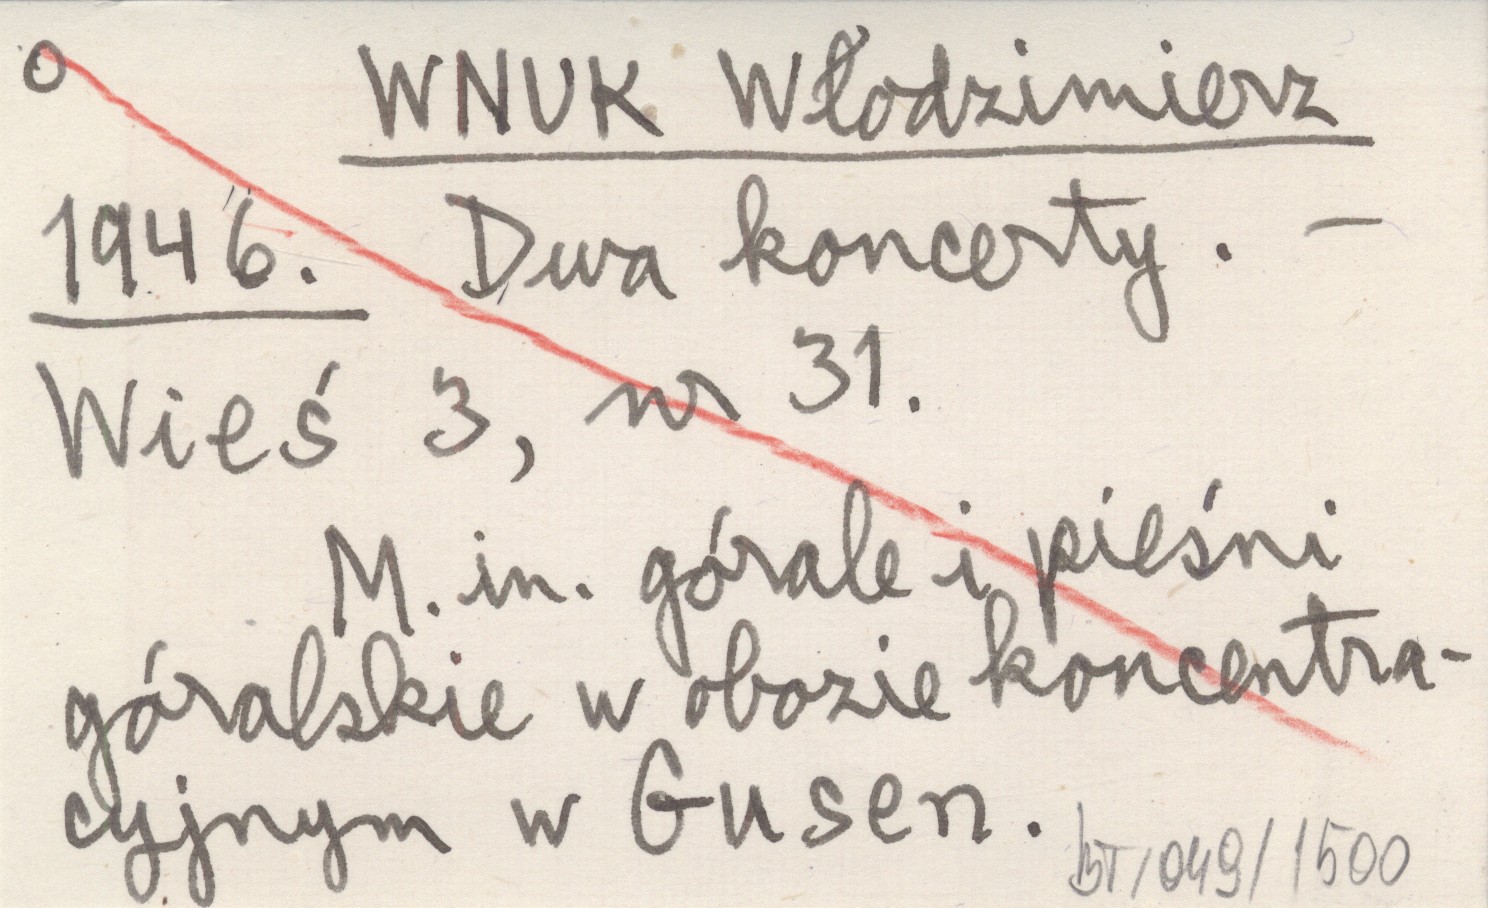 o WNUK Włodzimierz
1946. Dwa koncerty. –
Wieś 3, nr 31.
M. in. górale i pieśni
góralskie w obozie koncentra-
cyjnym w Gusen.
BT/049/1500